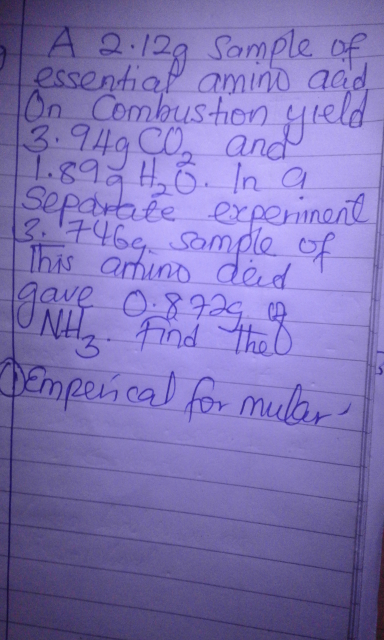 A 2.12g Sample of
essential amino acid
On Combustion yield
3.94g CO2 and
1.89g H2O. In a
Separate experiment
3.746g sample of
This amino acid
gave 0.872g of
NH3. Find the
① Emperical formular